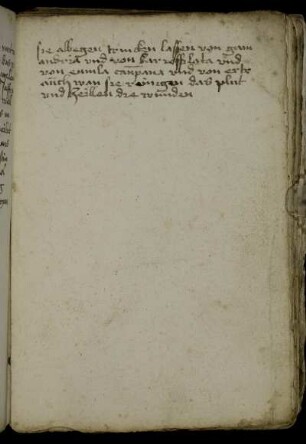 sie albegen trincken lassen von gam
andrea vnd von garioffilata vnd
von enula campana vnd von
auch wan sie reinigen das plut
vnd heilen die wunden